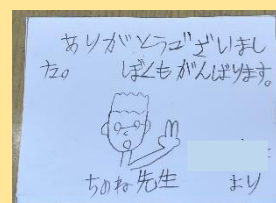 ありがとうございまし
た。　ぼくもがんばります。
ちのね先生　より